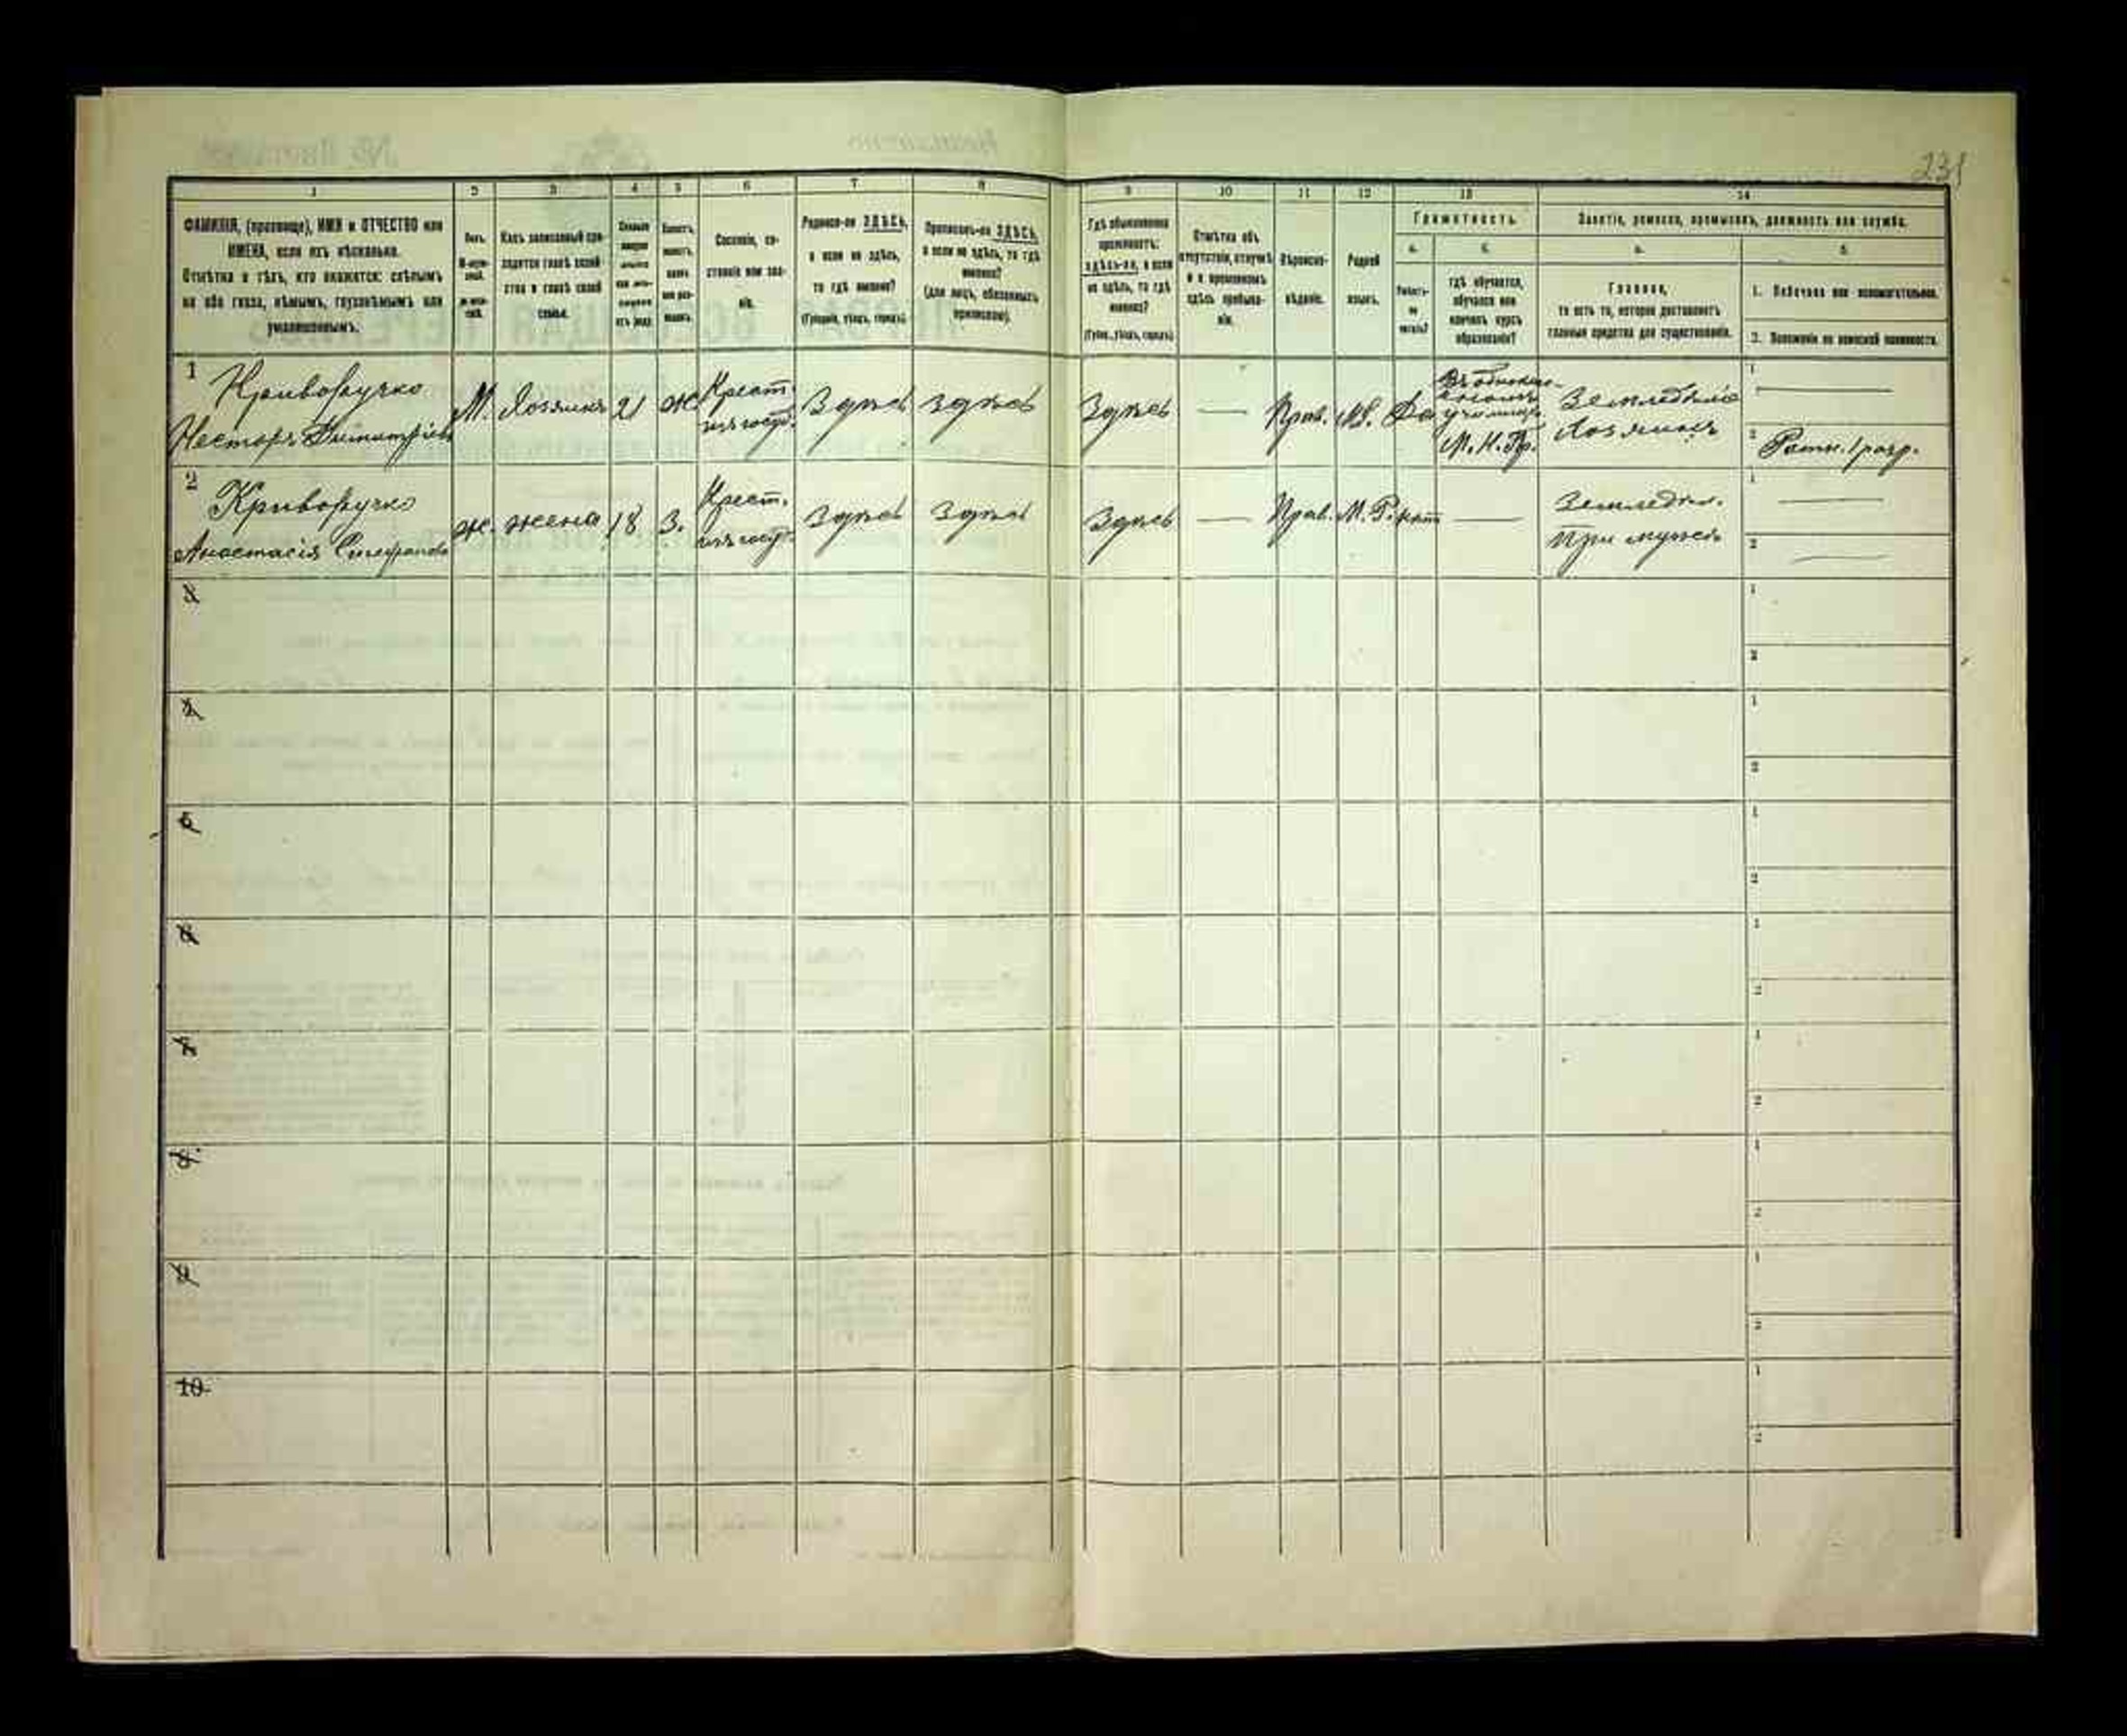 231
1 2 3 4 5 6 7 8 9 10 11 12 13 14
ФАМИЛІЯ, (прозвище), ИМЯ и ОТЧЕСТВО или
ИМЕНА, если ихъ нѣсколько.
Отмѣтка о тѣхъ, кто окажется: слѣпымъ
на оба глаза, нѣмымъ, глухонѣмымъ или
умалишеннымъ.
Полъ.
Какъ записанный при-
ходится главѣ хозяй-
ства и главѣ своей
семьи.
Сословіе, со-
стояніе или зва-
ніе.
Родился-ли ЗДѢСЬ,
а если не здѣсь,
то гдѣ именно?
(Губернія, уѣздъ, городъ).
Приписанъ-ли ЗДѢСЬ,
а если не здѣсь, то гдѣ
именно?
(для лицъ, обязанныхъ
припискою).
Гдѣ обыкновенно
проживаетъ:
здѣсь-ли, а если
не здѣсь, то гдѣ
именно?
(Губ., уѣздъ, городъ)
Отмѣтка объ
отсутствіи, отлучкѣ
и о временномъ
здѣсь пребыва-
ніи.
Вѣроиспо-
вѣданіе.
Родной
языкъ.
Грамотность.
а. б.
Умѣетъ-
ли
читать?
гдѣ обучается,
обучался или
кончилъ курсъ
образованія?
Занятіе, ремесло, промыселъ, должность или служба.
а. б.
Главное,
то есть то, которое доставляетъ
главныя средства для существованія.
1. Побочное или вспомогательное.
2. Положеніе по воинской повинности.
1 Криворучко
Несторъ Димитріевъ
М. Хозяинъ 21 Ж
Крест.
изъ госуд.
Здѣсь Здѣсь Здѣсь — Прав. М.Р. Да
въ однокла-
сномъ
училищѣ
М. Н. Пр.
Земледѣліе
Хозяинъ
1 —
2 Ратн. 1 разр.
2 Криворучко
Анастасія
ж. жена 18 З.
Крест.
изъ госуд.
Здѣсь Здѣсь Здѣсь — Прав. М. Р. нѣт —
Земледѣл.
При мужѣ
1 —
2 —
3 1
2
4 1
2
5 1
2
6 1
2
7 1
2
8 1
2
9 1
2
10 1
2